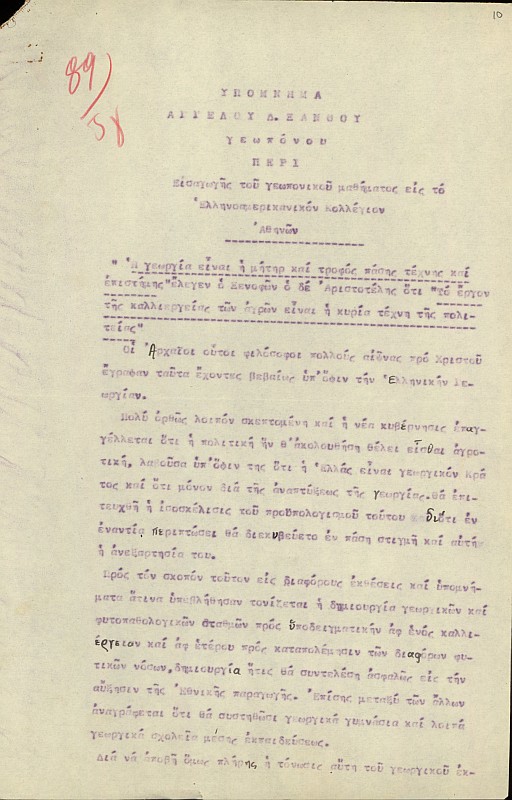 10
89/58
ΥΠΟΜΝΗΜΑ
ΑΓΓΕΛΟΥ Δ. ΞΑΝΘΟΥ
γεωπόνου
ΠΕΡΙ
Εἰσαγωγῆς τοῦ γεωπονικοῦ μαθήματος εἰς τό
Ἑλληνοαμερικανικόν Κολλέγιον
Ἀθηνῶν
" Ἡ γεωργία εἶναι ἡ μήτηρ καί τροφός πάσης τέχνης καί
ἐπιστήμης" ἔλεγεν ὁ Ξενοφῶν ὁ δέ Ἀριστοτέλης ὅτι "τό ἔργον
τῆς καλλιεργείας τῶν ἀγρῶν εἶναι ἡ κυρία τέχνη τῆς πολι-
τείας"
Οἱ Ἀρχαῖοι οὗτοι φιλόσοφοι πολλούς αἰῶνας πρό Χριστοῦ
ἔγραφαν ταῦτα ἔχοντες βεβαίως ὑπ'ὄψιν τήν Ἑλληνικήν Γε-
ωργίαν.
Πολύ ὀρθῶς λοιπόν σκεπτομένη καί ἡ νέα κυβέρνησις ἐπαγ-
γέλλεται ὅτι ἡ πολιτική ἥν θ'ἀκολουθήση θέλει εἶσθαι ἀγρο-
τική, λαβοῦσα ὑπ'ὄψιν της ὅτι ἡ Ἑλλάς εἶναι γεωργικόν κρά
τος καί ὅτι μόνον διά τῆς ἀναπτύξεως τῆς γεωργίας θά ἐπι-
τευχθῆ ἡ ἰσοσκέλισις τοῦ προϋπολογισμοῦ τούτου διότι ἐν
ἐναντίᾳ περιπτώσει θά διεκυβεύετο ἐν πάση στιγμῆ καί αὐτή
ἡ ἀνεξαρτησία του.
Πρός τόν σκοπόν τοῦτον εἰς διαφόρους ἐκθέσεις καί ὑπομνή-
ματα ἅτινα ὑπεβλήθησαν τονίζεται ἡ δημιουργία γεωργικῶν καί
φυτοπαθολογικῶν σταθμῶν πρός ὑποδειγματικήν ἀφ ἑνός καλλι-
έργειαν καί ἀφ ἑτέρου πρός καταπολέμησιν τῶν διαφόρων φυ-
τικῶν νόσων, δημιουργία ἥτις θά συντελέση ἀσφαλῶς εἰς τήν
αὔξησιν τῆς Ἐθνικῆς παραγωγῆς. Ἐπίσης μεταξύ τῶν ἄλλων
ἀναγράφεται ὅτι θά συστηθῶσι γεωργικά γυμνάσια καί λοιπά
γεωργικά σχολεῖα μέσης ἐκπαιδεύσεως.
Διά νά ἀποβῆ ὅμως πλήρης ἡ τόνωσις αὕτη τοῦ γεωργικοῦ ἐκ-